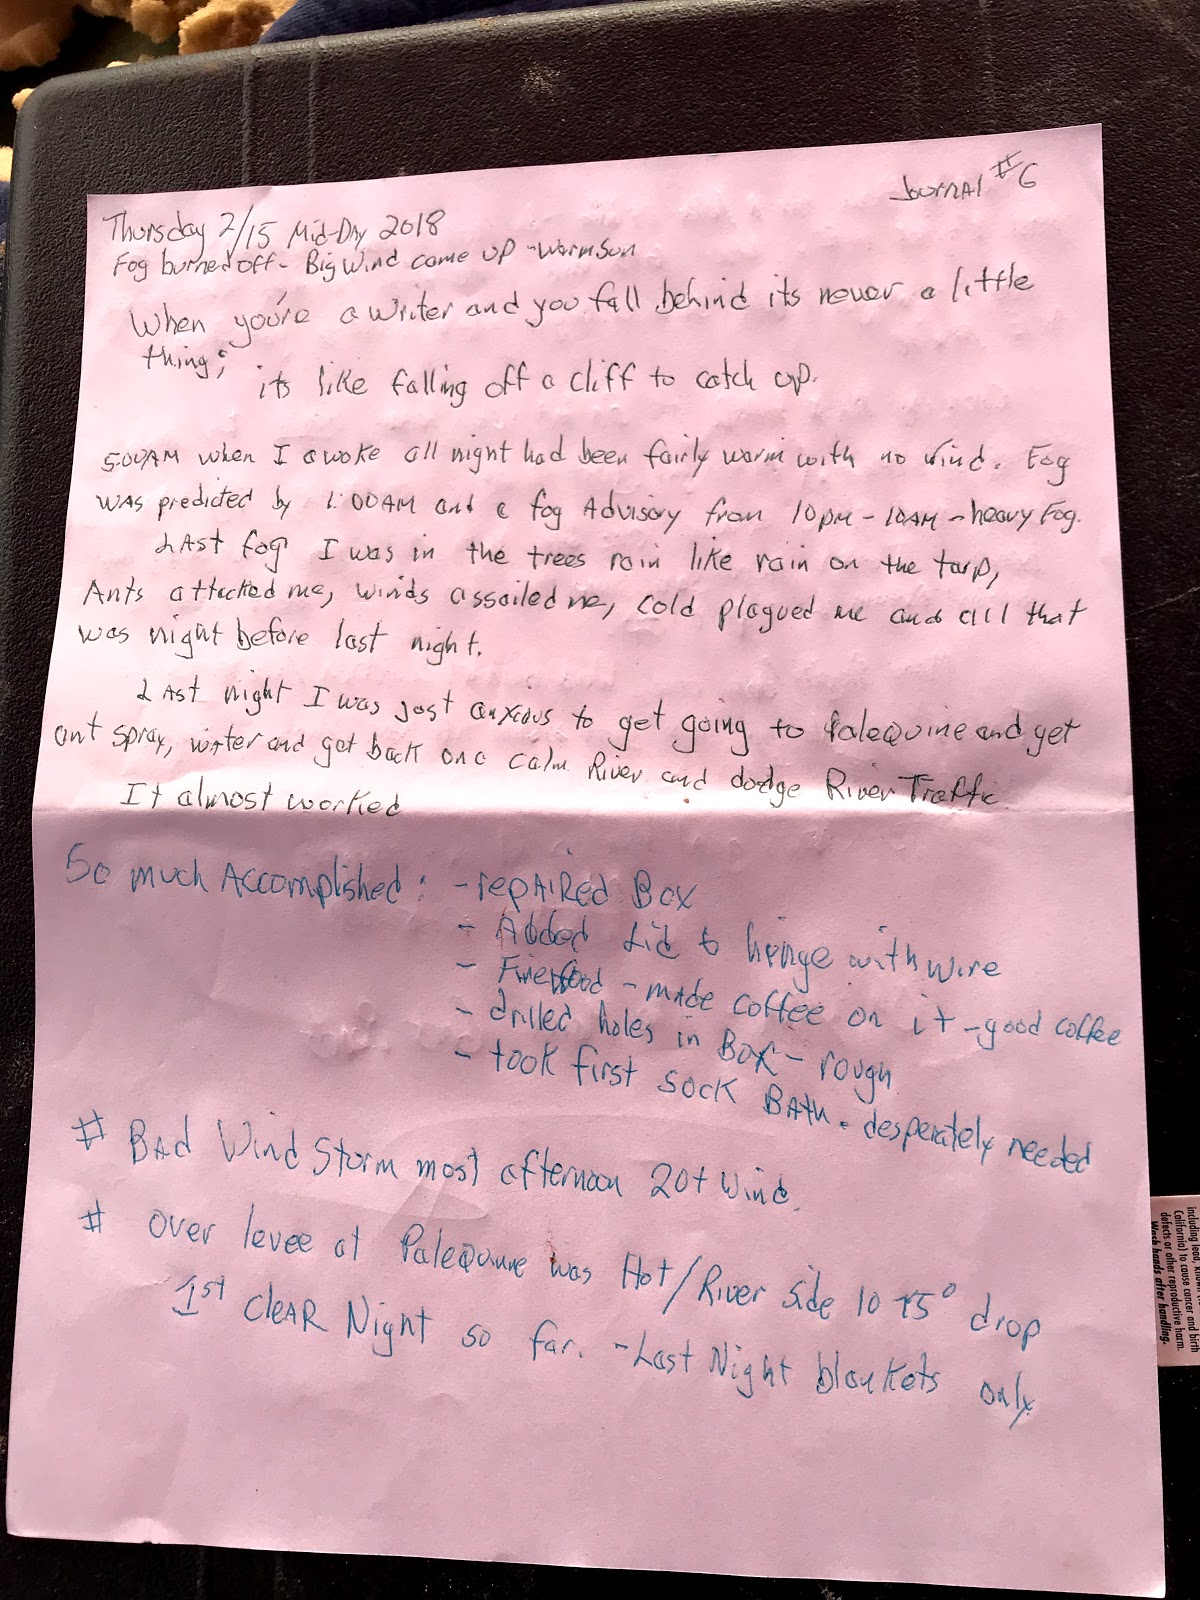 Journal #6
Thursday 2/15 Mid-Day 2018
Fog burned off - Big Wind came up - warm sun
When you're a writer and you fall behind its never a little
thing;
its like falling off a cliff to catch up.
5:00AM when I awoke all night had been fairly warm with no wind. Fog
was predicted by 1:00AM and a fog Advisory from 10pm - 10AM - heavy Fog.
Last fog I was in the trees rain like rain on the tarp,
Ants attacked me, winds assailed me, cold plagued me and all that
was night before last night.
Last night I was just anxious to get going to Palequine and get
ant spray, water and get back on a calm River and dodge River Traffic
It almost worked
So much Accomplished: - repaired Box
- Added Lid to hinge with wire
- Firewood - made coffee on it - good coffee
- drilled holes in Box - rough
- took first sock Bath. desperately needed
# Bad Wind Storm most afternoon 20+ wind.
# over levee at Palequine was Hot/River side 10 15° drop
1st Clear Night so far. - Last Night blankets only
including lead, known to
California) to cause cancer and birth
defects or other reproductive harm.
Wash hands after handling.